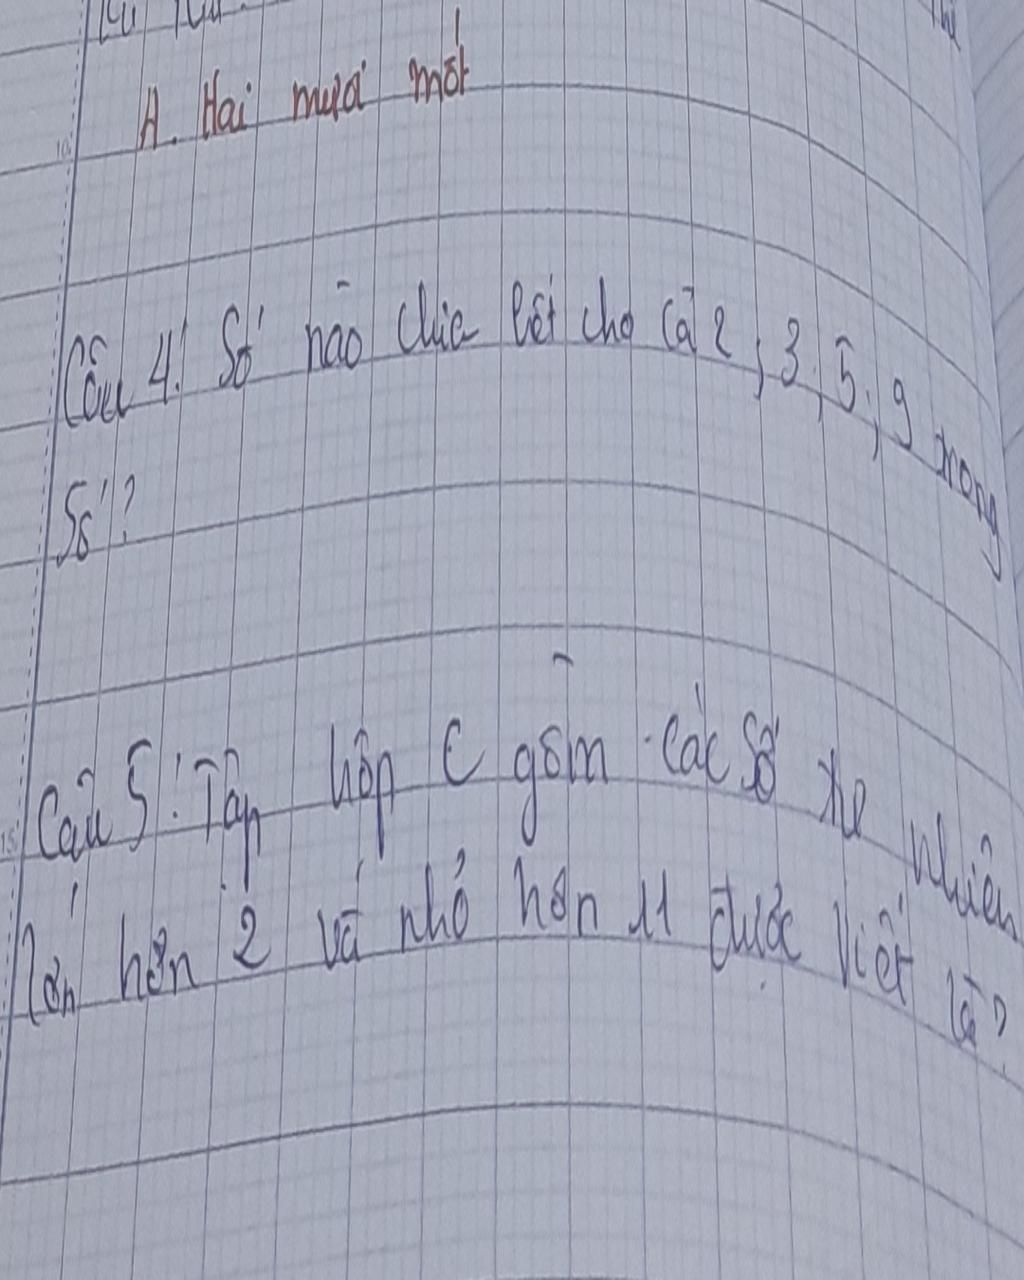 A. Hai mươi mốt
Câu 4: Số nào chia hết cho cả 2, 3, 5, 9 trong
Số?
Câu 5: Tập hợp C gồm các số tự nhiên
lớn hơn 2 và nhỏ hơn 11 được viết là?